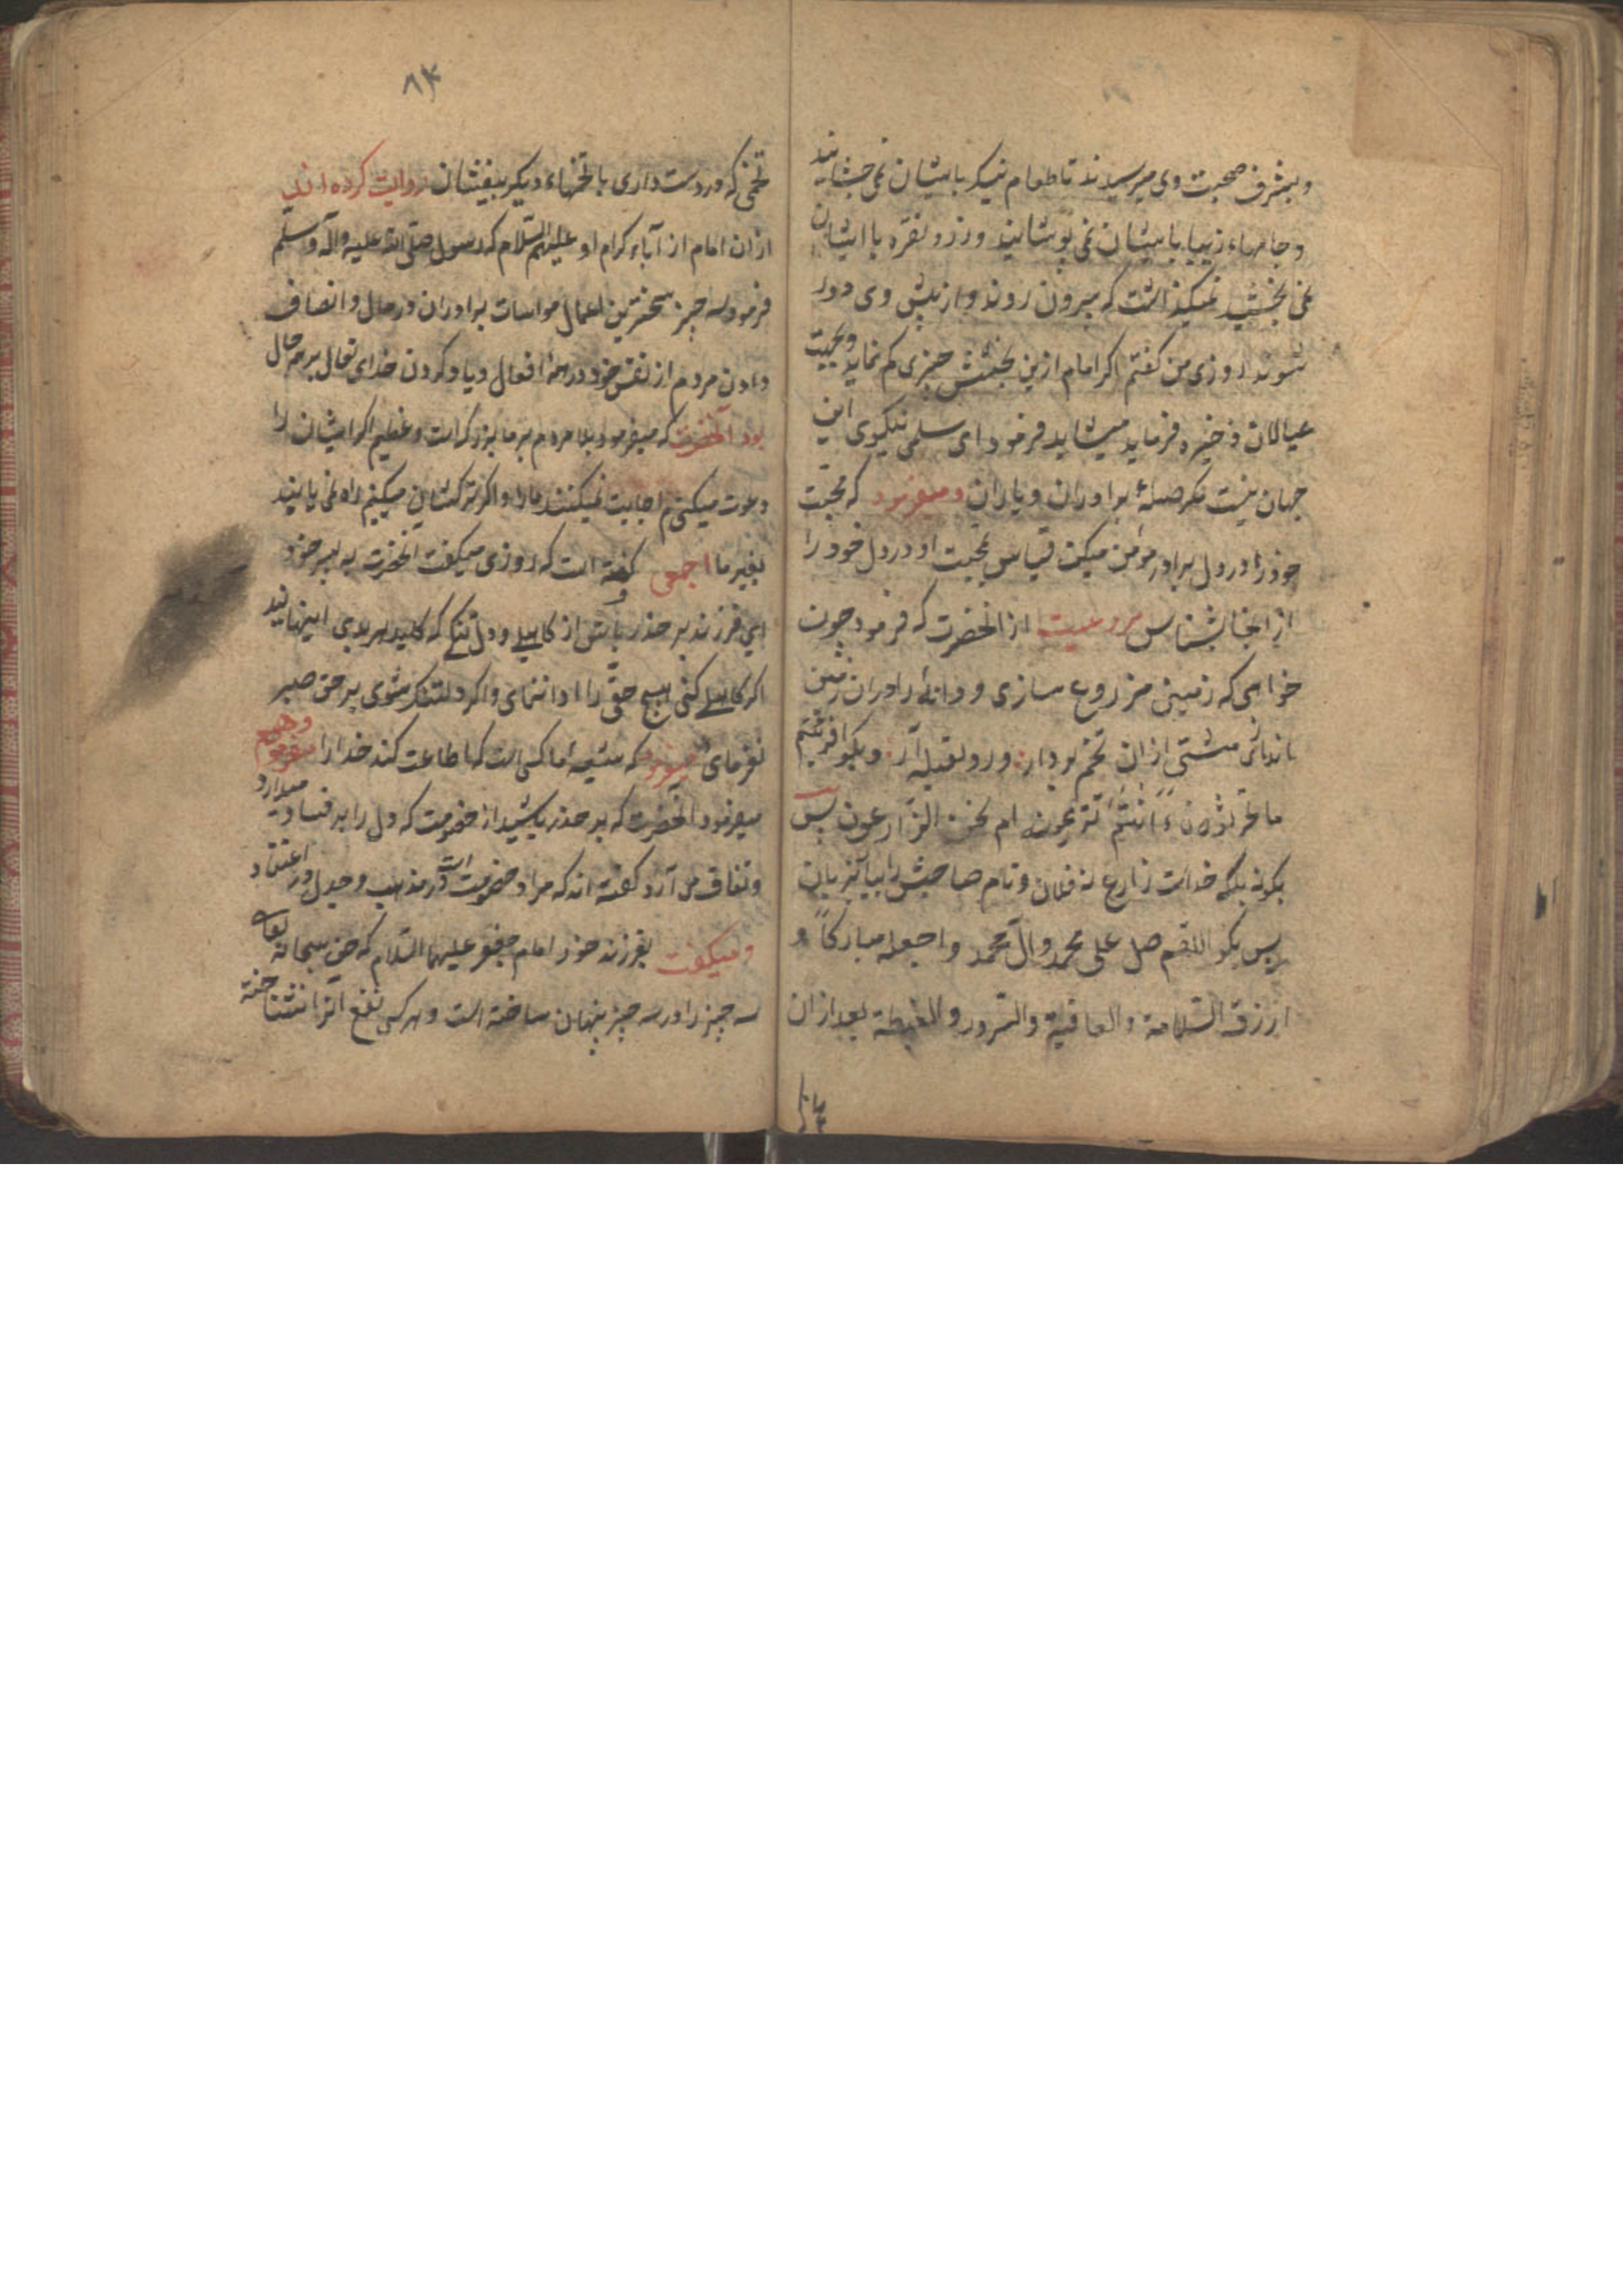 وبشرف صحبت وی میرسیدند تا طعام نیک با ایشان نمی چشانید
و جامهاء زیبا با یشان نمی پوشانید و زر و نقره با ایشان
نمی بخشید نمیگذاشت که بیرون روند و از پیش وی دور
شوند روزی من گفتم اگر امام ازین بخشش چیزی کم نماید و بجهت
عیالان ذخیره فرماید میشاید فرمود ای سلمی نیکوی این
جهان نیست مگر صلهٔ برادران و یاران و میفرمود که محبت
خود را در دل برادر مؤمن میکن قیاس بمحبت او در دل خود را
از انجا بشناس مرویست از انحضرت که فرمود چون
خواهی که زمینی مزروع سازی و دانه را در ان زمین
پاشی مشتی از ان تخم بردار و رو بقبله آر و بگو افرئیتم
ما تحرثون ءانتم تزرعونه ام نحن الزارعون پس
بگو نه بلکه خداست زارع نه فلان و نام صاحبش را بیا بزبان
پس بگو اللهم صل علی محمد وال محمد واجعله مبارکا و
ارزق السلامة والعافیة والسرور والغبطة بعد ازان
۸۴
تخمی که در دست داری با تخمهاء دیگر بیفشان روایت کرده اند
از ان امام از آباء کرام او علیهم السلام که رسول صلی الله علیه واله وسلم
فرمود سه چیز سختترین اعمال مواسات برادران در مال و انصاف
دادن مردم از نفس خود در همه افعال و یاد کردن خدای تعالی بر همه حال
بود آنحضرت که میفرمود بلاء مردم بر ما بزرگ است و عظیم اگر ایشان را
دعوت میکنیم اجابت نمیکنند ما را و اگر ترکشان میکنیم راه نمی یابند
بغیر ما اجمعی گفته است که روزی میگفت انحضرت به پسر خود
ای فرزند بر حذر باش از کاهلی و دل تنگی که کلید هر بدی اینهایند
اگر کاهلی کنی هیچ حقی را ادا ننمای و اگر دلتنک شوی بر حق صبر
نفرمای میفرمود که شیعه ما کسی است که اطاعت کند خدا را
میفرمود انحضرت که بر حذر باشید از خصومت که دل را بر فساد میدارد
و نفاق می آرد گفته اند که مراد خصومت است در مذهب و جدل در اعتقاد
و میگفت بفرزند خود امام جعفر علیهما السلام که حق سبحانه تعالی
سه چیز را در سه چیز پنهان ساخته است و هر کسی نفع آنرا نشناخته